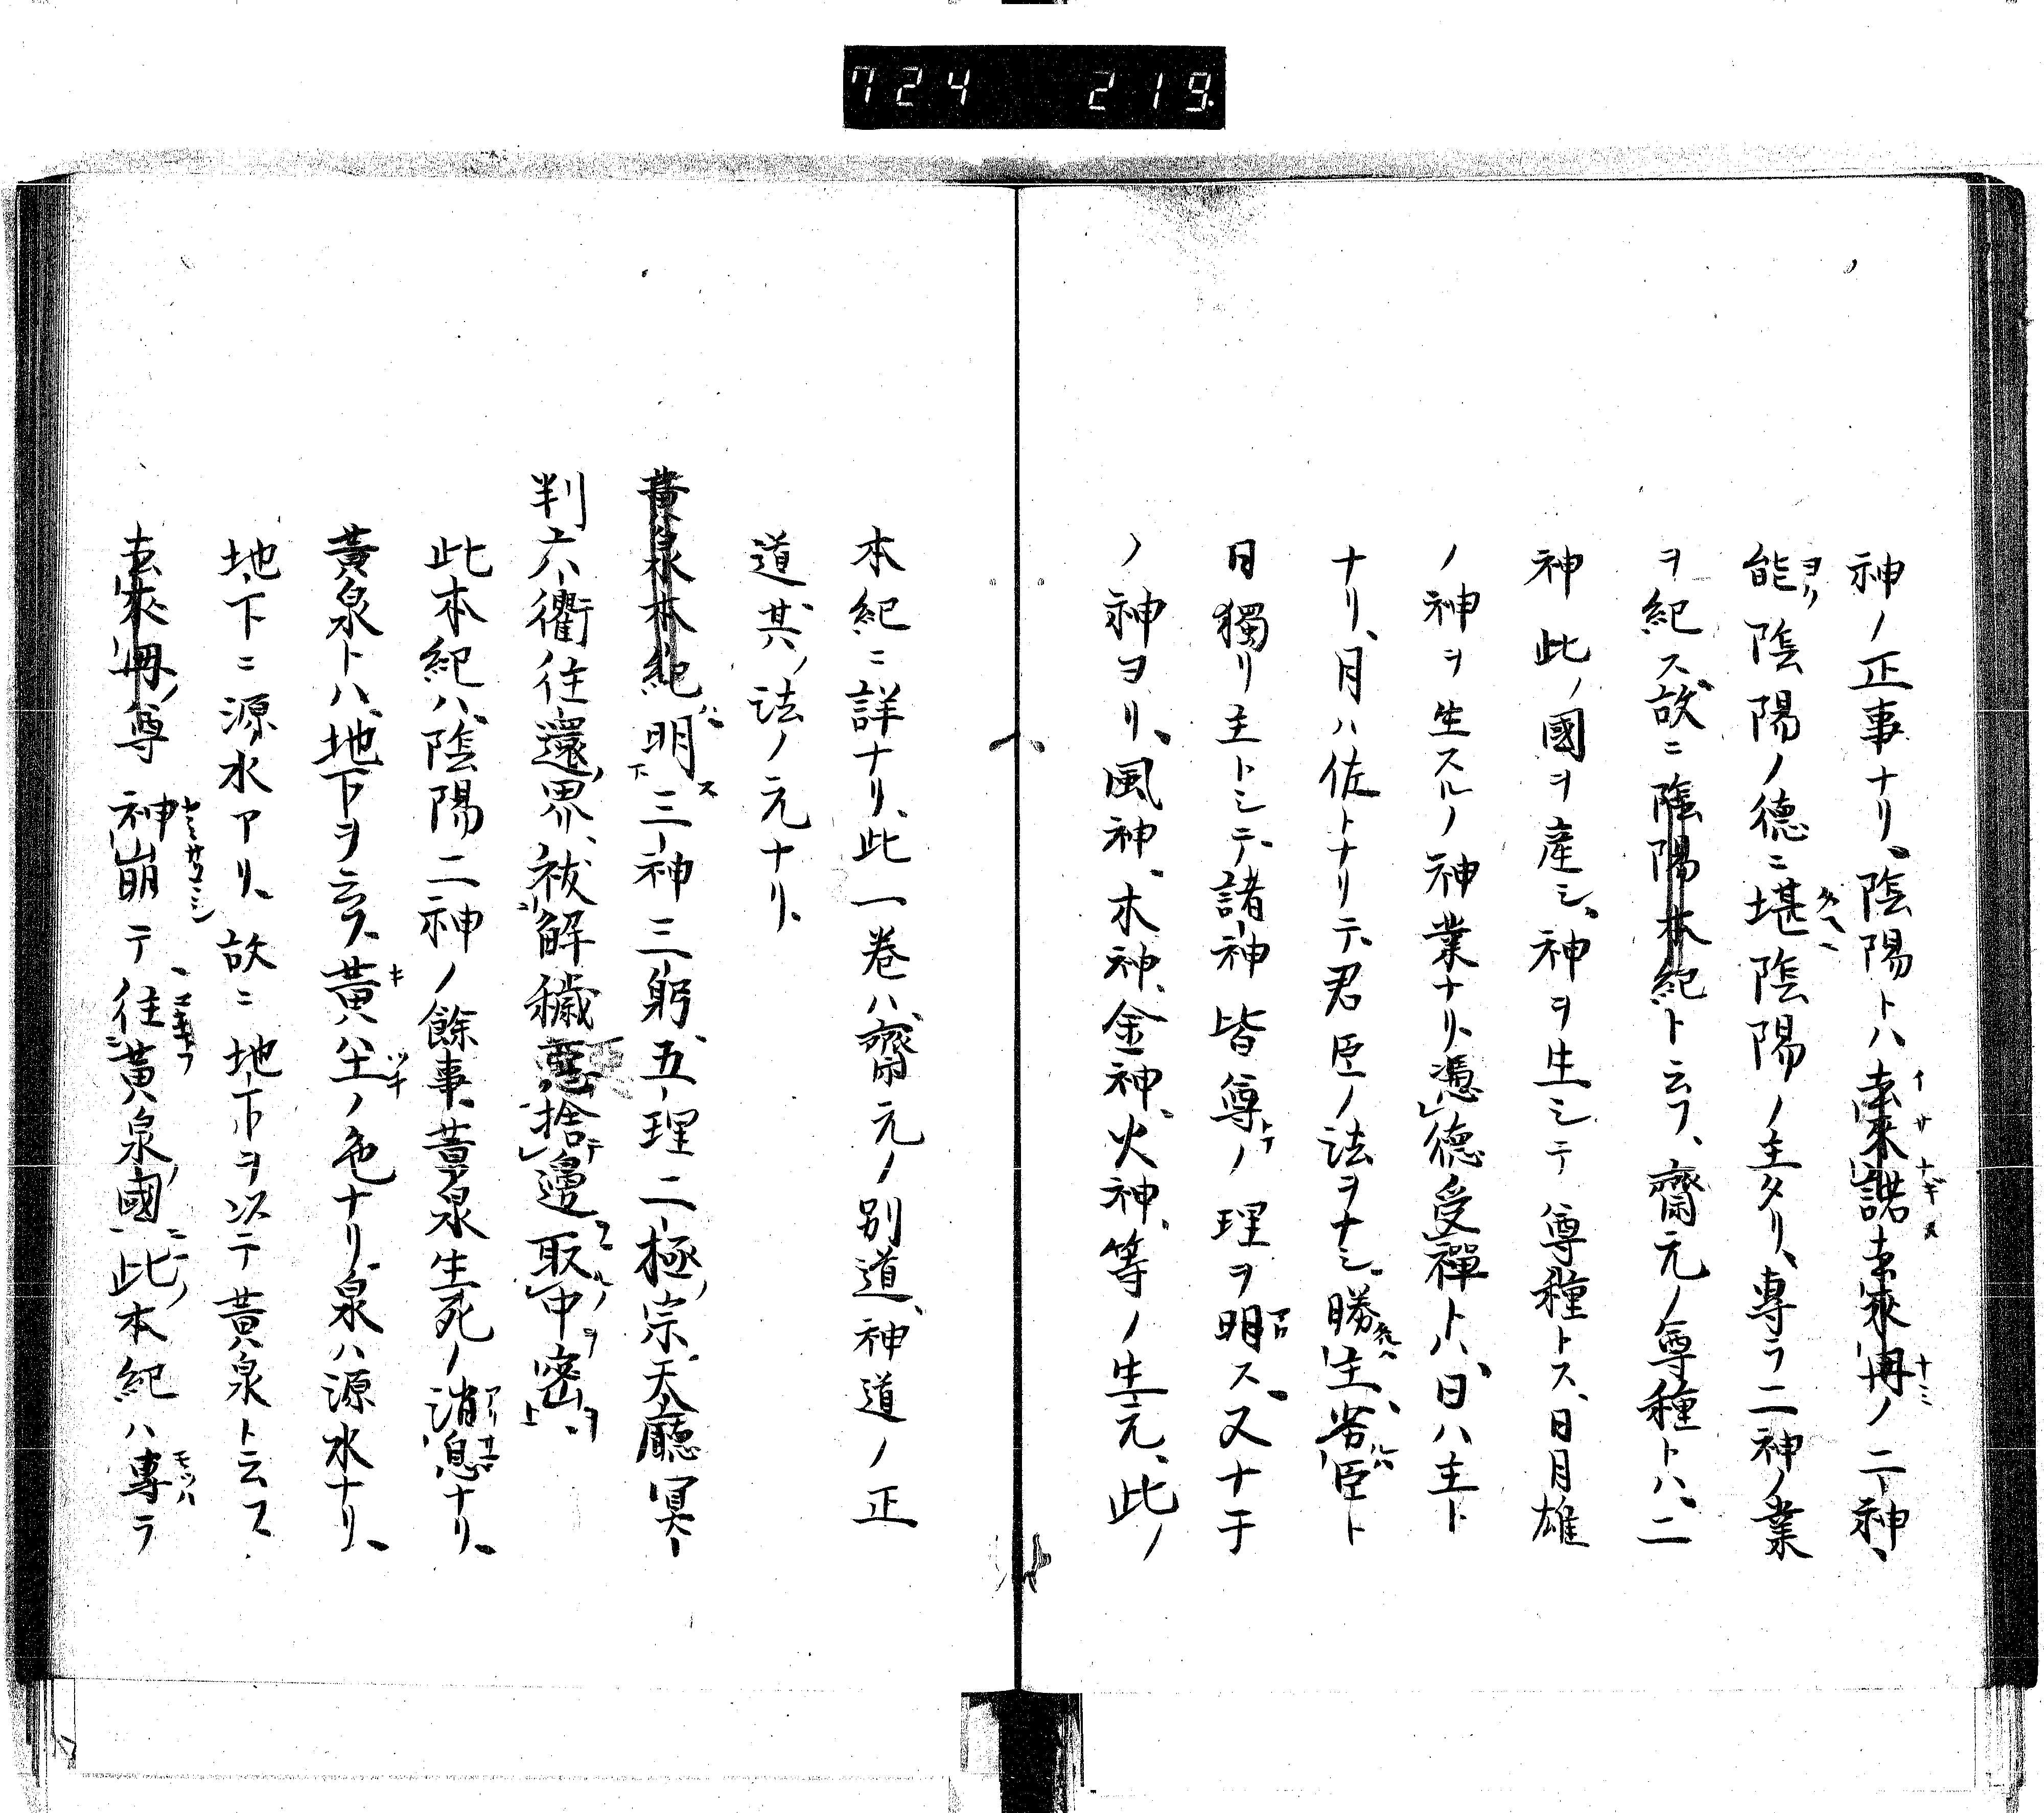 724 219
神ノ正事ナリ、陰陽トハ去來諾去來冊ノ二神、
能陰陽ノ德ニ堪陰陽ノ主タリ、專ラ二神ノ業
ヲ紀ス、故ニ陰陽本紀ト云フ、齋元ノ尊種トハ、二
神此ノ國ヲ產シ、神ヲ生シテ尊種トス、日月雄
ノ神ヲ生スルノ神業ナリ、憑德受禪トハ、日ハ主ト
ナリ、月ハ佐トナリテ、君臣ノ法ヲナシ、勝主、臣ト
日獨リ主トシテ、諸神皆尊ノ理ヲ明ス、又ナ于
ノ神ヨリ、風神、木神、金神、火神、等ノ生元、此ノ
本紀ニ詳ナリ、此一卷ハ、齋元ノ別道、神道ノ正
道其ノ法ノ元ナリ、
黃泉本紀ハ明三神三躬、五理二極ノ宗、天廳冥
判六衢ノ往還ノ界、祓解穢惡捨邊取中密
此本紀ハ、陰陽二神ノ餘事、黃泉生死ノ消息ナリ、
黃泉トハ、地下ヲ云フ、黃ハ土ノ色ナリ、泉ハ源水ナリ、
地下ニ源水アリ、故ニ地下ヲ以テ黃泉ト云フ、
去來冊ノ尊神崩テ、往黃泉國、此ノ本紀ハ專ラ